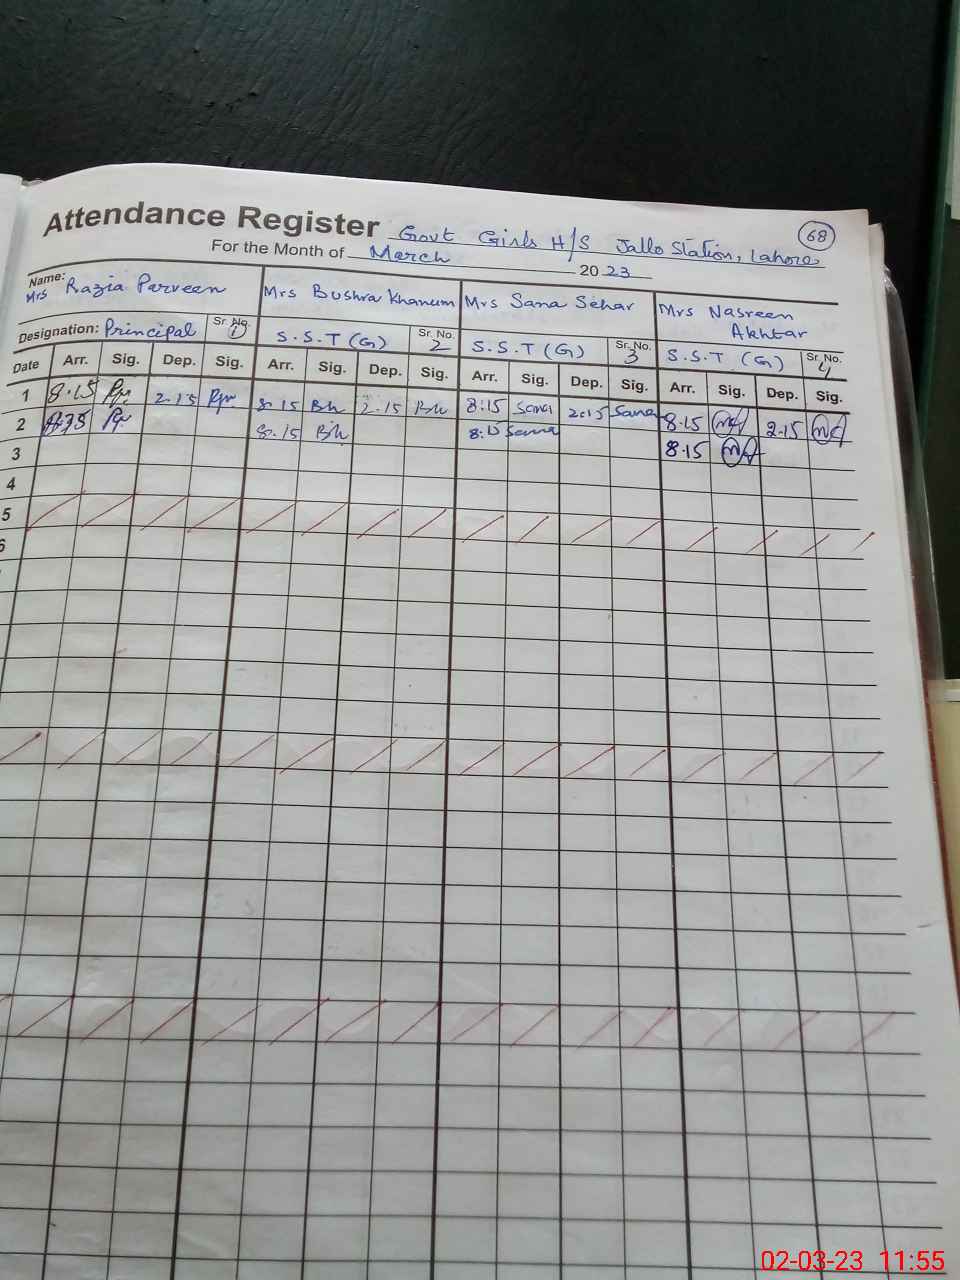 Attendance Register Govt Girls H/S Jallo Station, Lahore 68
For the Month of March 2023
Name: Mrs Razia Parveen Mrs Bushra Khanum Mrs Sana Sehar Mrs Nasreen Akhtar
Designation: Principal Sr. No. 1 S.S.T (G) Sr. No. 2 S.S.T (G) Sr. No. 3 S.S.T (G) Sr. No. 4
Date Arr. Sig. Dep. Sig. Arr. Sig. Dep. Sig. Arr. Sig. Dep. Sig. Arr. Sig. Dep. Sig.
1 8.15 2.15 8.15 Bk 2.15 Bk 8:15 Sana 2:15 Sana 8.15 2.15
2 8.15 Bk 8:15 Sana 8.15
3
4
5
6
02-03-23 11:55